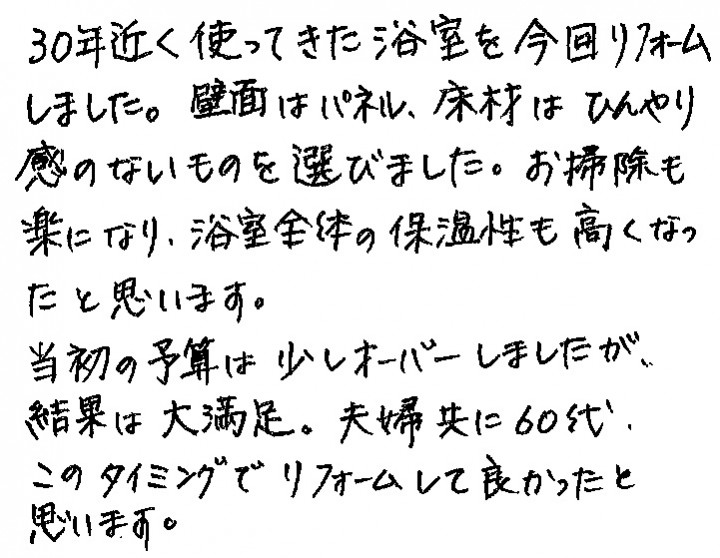 30年近く使ってきた浴室を今回リフォーム
しました。壁面はパネル、床材はひんやり
感のないものを選びました。お掃除も
楽になり、浴室全体の保温性も高くなっ
たと思います。
当初の予算は少しオーバーしましたが、
結果は大満足。夫婦共に60代、
このタイミングでリフォームして良かったと
思います。